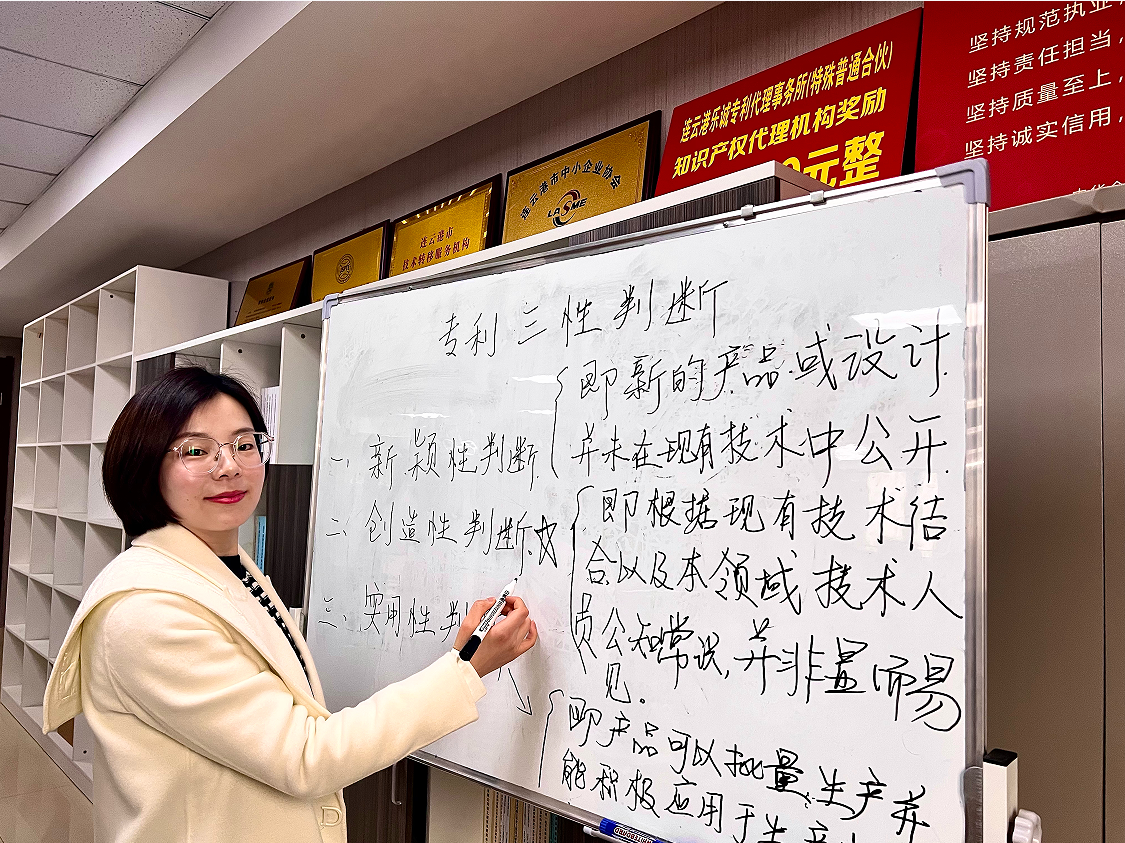 坚持规范执业
坚持责任担当，
坚持质量至上，
坚持诚实信用，
连云港乐诚专利代理事务所(特殊普通合伙)
知识产权代理机构奖励
0元整
连云港市中小企业协会
LASME
连云港市
技术转移服务机构
专利三性判断
一、新颖性判断
即新的产品或设计
并未在现有技术中公开.
二、创造性判断
即根据现有技术结
合以及本领域技术人
员公知常识,并非显而易
见.
三、实用性判
即产品可以批量生产并
能积极应用于生产